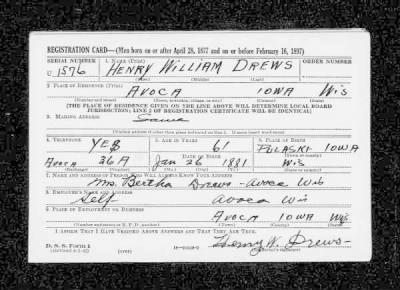 REGISTRATION CARD—(Men born on or after April 28, 1877 and on or before February 16, 1897)
SERIAL NUMBER 1. NAME (Print) ORDER NUMBER
U 1576 HENRY WILLIAM DREWS
(First) (Middle) (Last)
2. PLACE OF RESIDENCE (Print)
AVOCA IOWA Wis
(Number and street) (Town, township, village, or city) (County) (State)
[THE PLACE OF RESIDENCE GIVEN ON THE LINE ABOVE WILL DETERMINE LOCAL BOARD
JURISDICTION; LINE 2 OF REGISTRATION CERTIFICATE WILL BE IDENTICAL]
3. MAILING ADDRESS
Same
[Mailing address if other than place indicated on line 2. If same insert word same]
4. TELEPHONE 5. AGE IN YEARS 6. PLACE OF BIRTH
YES 61 PULASKI IOWA
DATE OF BIRTH (Town or county)
Avoca 26A Jan 26 1881 Wis
(Exchange) (Number) (Mo.) (Day) (Yr.) (State or country)
7. NAME AND ADDRESS OF PERSON WHO WILL ALWAYS KNOW YOUR ADDRESS
Mrs. Bertha Drews - Avoca Wis
8. EMPLOYER'S NAME AND ADDRESS
Self Avoca Wis
9. PLACE OF EMPLOYMENT OR BUSINESS
AVOCA IOWA Wis
(Number and street or R. F. D. number) (Town) (County) (State)
I AFFIRM THAT I HAVE VERIFIED ABOVE ANSWERS AND THAT THEY ARE TRUE.
D. S. S. Form 1
(Revised 4-1-42) (over) Henry W. Drews
(Registrant's signature)